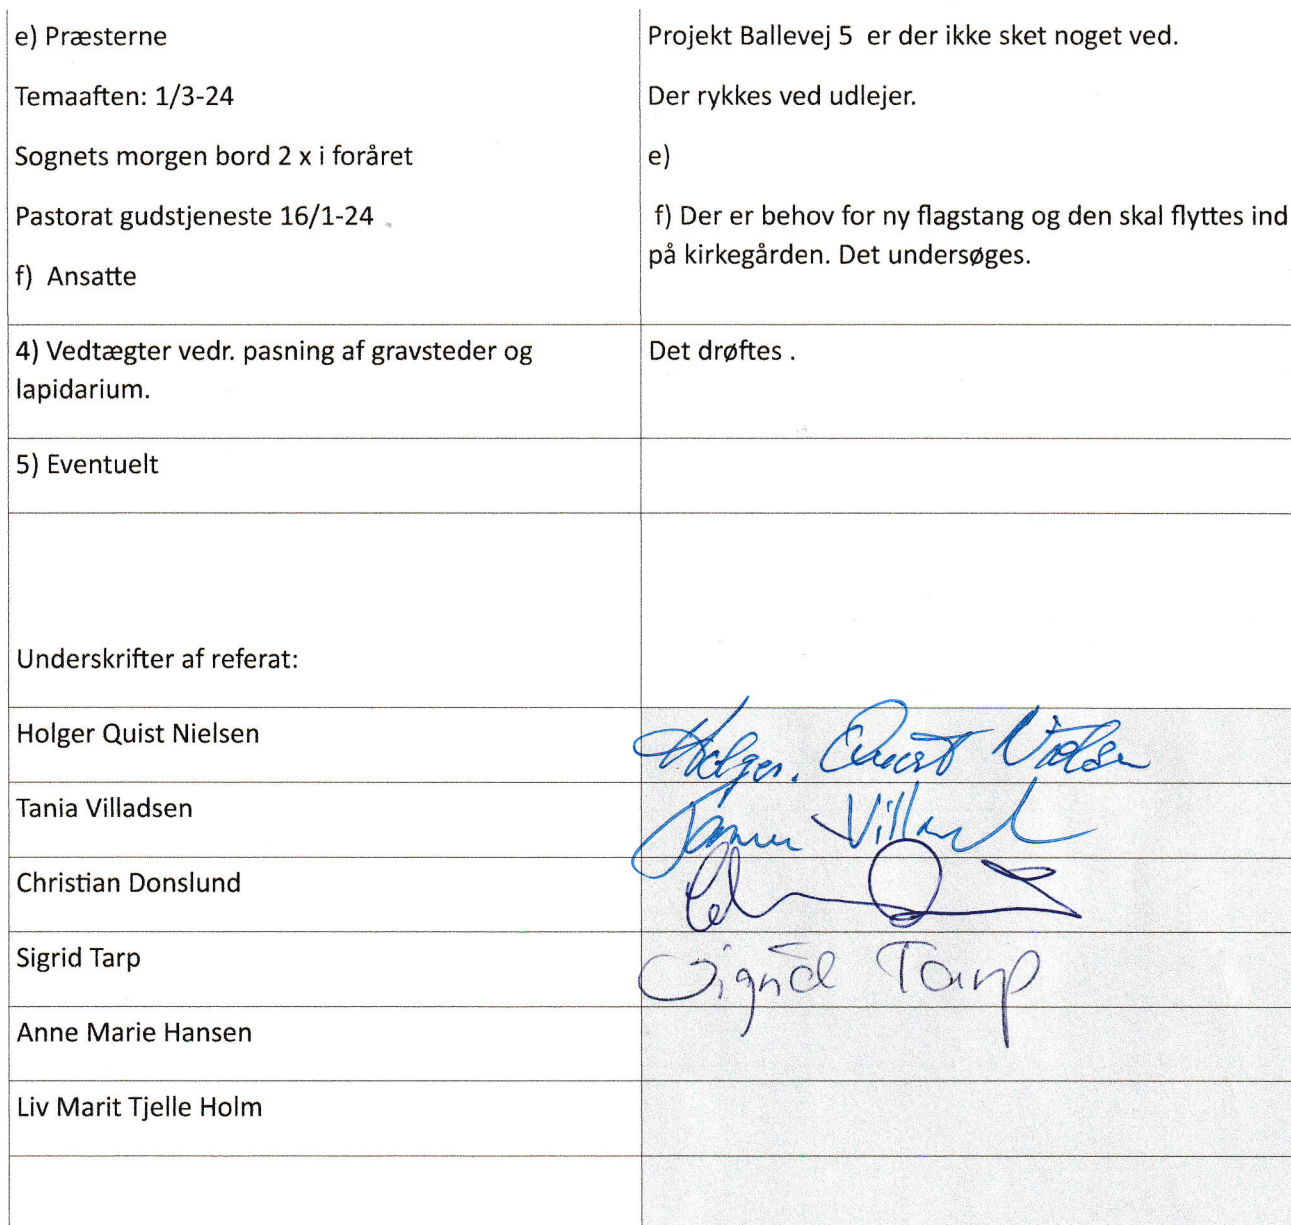 e) Præsterne
Temaaften: 1/3-24
Sognets morgen bord 2 x i foråret
Pastorat gudstjeneste 16/1-24
f)  Ansatte
Projekt Ballevej 5  er der ikke sket noget ved.
Der rykkes ved udlejer.
e)
f) Der er behov for ny flagstang og den skal flyttes ind
på kirkegården. Det undersøges.
4) Vedtægter vedr. pasning af gravsteder og
lapidarium.
Det drøftes .
5) Eventuelt
Underskrifter af referat:
Holger Quist Nielsen
Holger. Quist Nielsen
Tania Villadsen
Christian Donslund
Sigrid Tarp
Sigrid Tarp
Anne Marie Hansen
Liv Marit Tjelle Holm